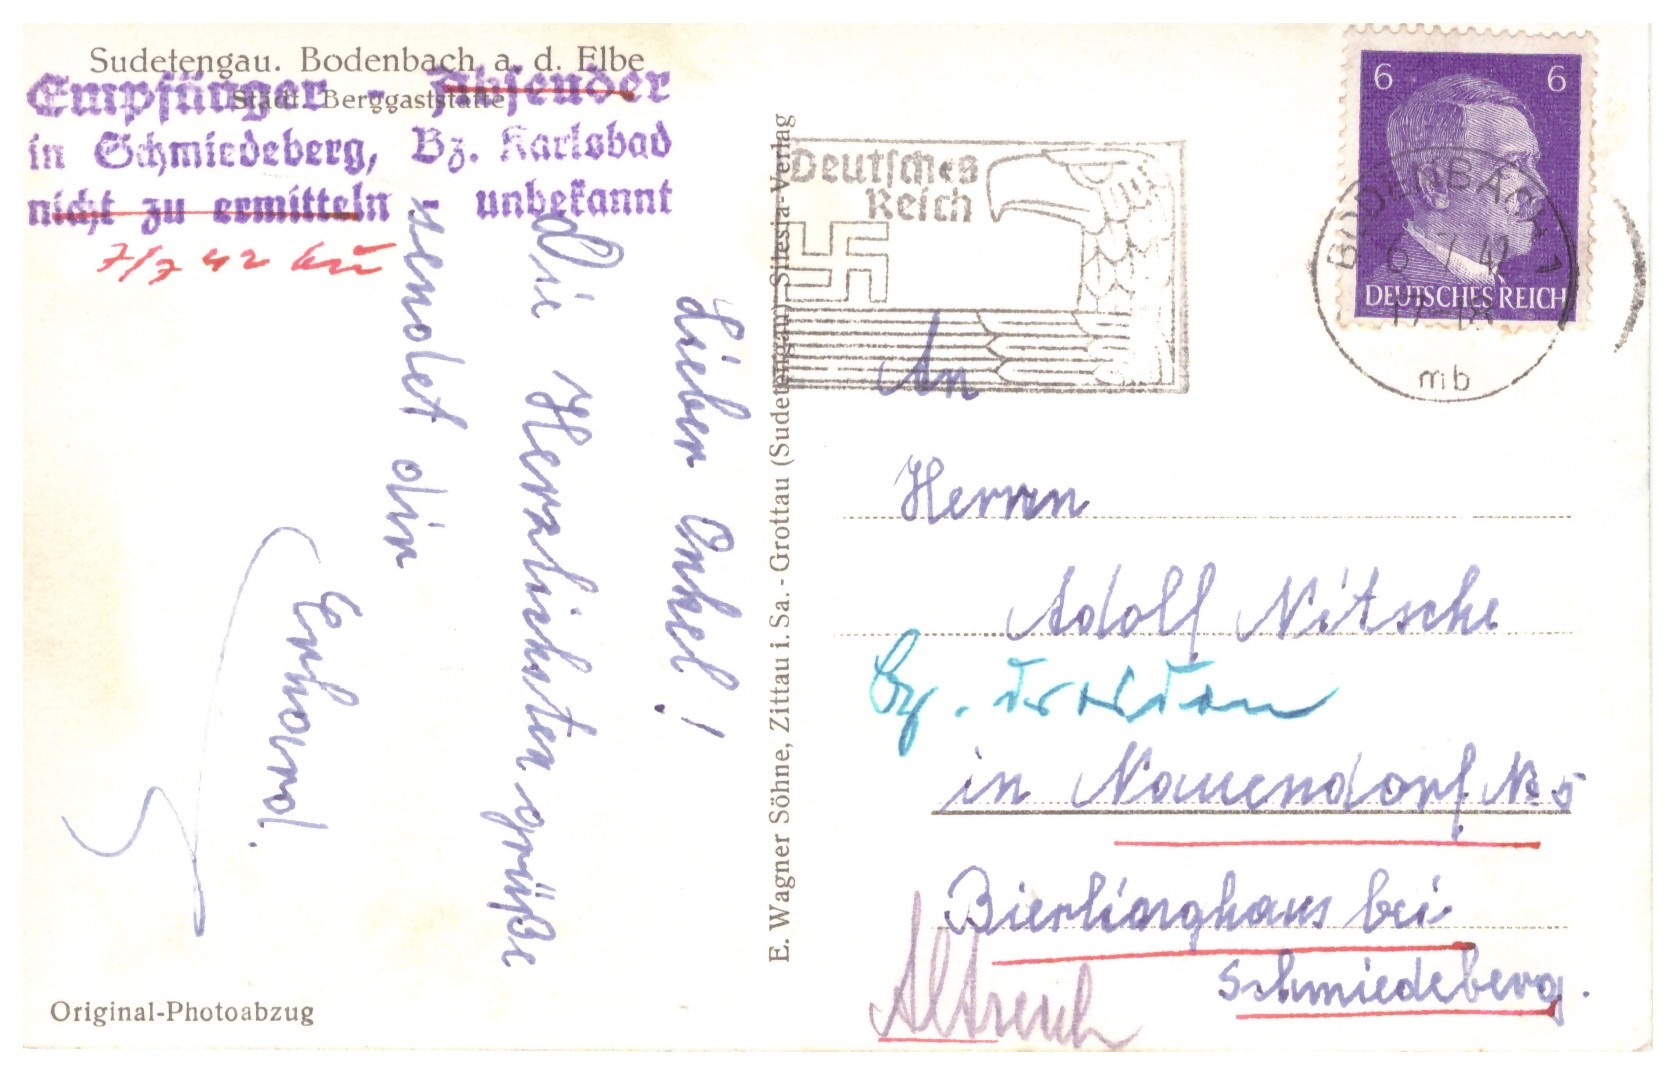 Sudetengau. Bodenbach a. d. Elbe
Städt. Berggaststätte
Empfänger - Absender
in Schmiedeberg, Bz. Karlsbad
nicht zu ermitteln - unbekannt
7/7 42
Lieber Onkel!
Die Herzlichsten grüße
sendet dir
Erhard.
Original-Photoabzug
E. Wagner Söhne, Zittau i. Sa. - Grottau (Sudetengau) Silesia-Verlag
Deutsches
Reich
6 6
DEUTSCHES REICH
BODENBACH 1
6.7.42
17-18
mb
An
Herrn
Adolf Nitsche
Bz. Dresden
in Nauendorf No 5
Bierlinghaus bei
Schmiedeberg.
Altreich